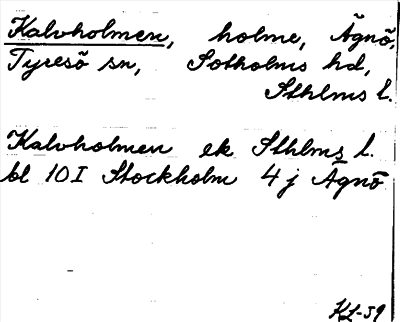 Kalvholmen, holme, Ägnö,
Tyresö sn, Sotholms hd,
Sthlms l.
Kalvholmen ek Sthlms l.
bl 10I Stockholm 4 j Ägnö
KL-59